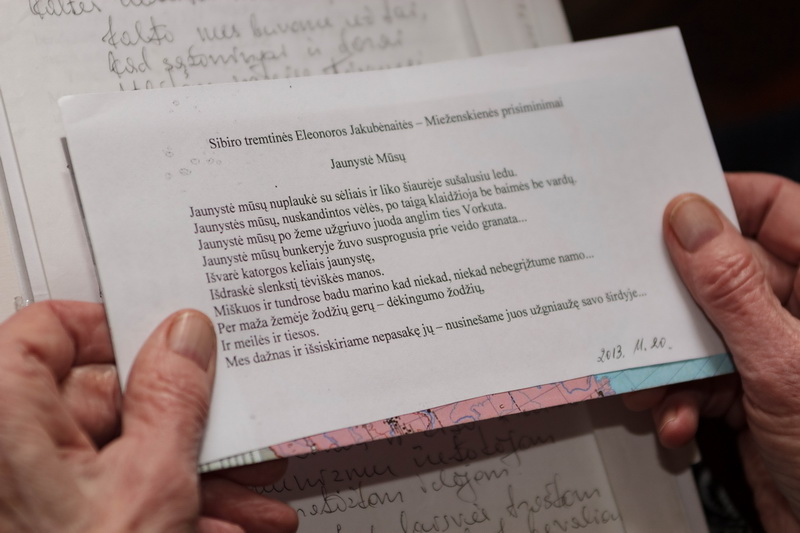 kalto mes buvome
kad
Sibiro tremtinės Eleonoros Jakubėnaitės – Mieženskienės prisiminimai
Jaunystė Mūsų
Jaunystė mūsų nuplaukė su sėliais ir liko šiaurėje sušalusiu ledu.
Jaunystės mūsų, nuskandintos vėlės, po taigą klaidžioja be baimės be vardų.
Jaunystė mūsų po žeme užgriuvo juoda anglim ties Vorkuta.
Jaunystė mūsų bunkeryje žuvo susprogusia prie veido granata...
Išvarė katorgos keliais jaunystę,
Išdraskė slenkstį tėviškės manos.
Miškuos ir tundrose badu marino kad niekad, niekad nebegrįžtume namo...
Per maža žemėje žodžių gerų – dėkingumo žodžių,
Ir meilės ir tiesos.
Mes dažnas ir išsiskiriame nepasakę jų – nusinešame juos užgniaužę savo širdyje...
2013. 11. 20.